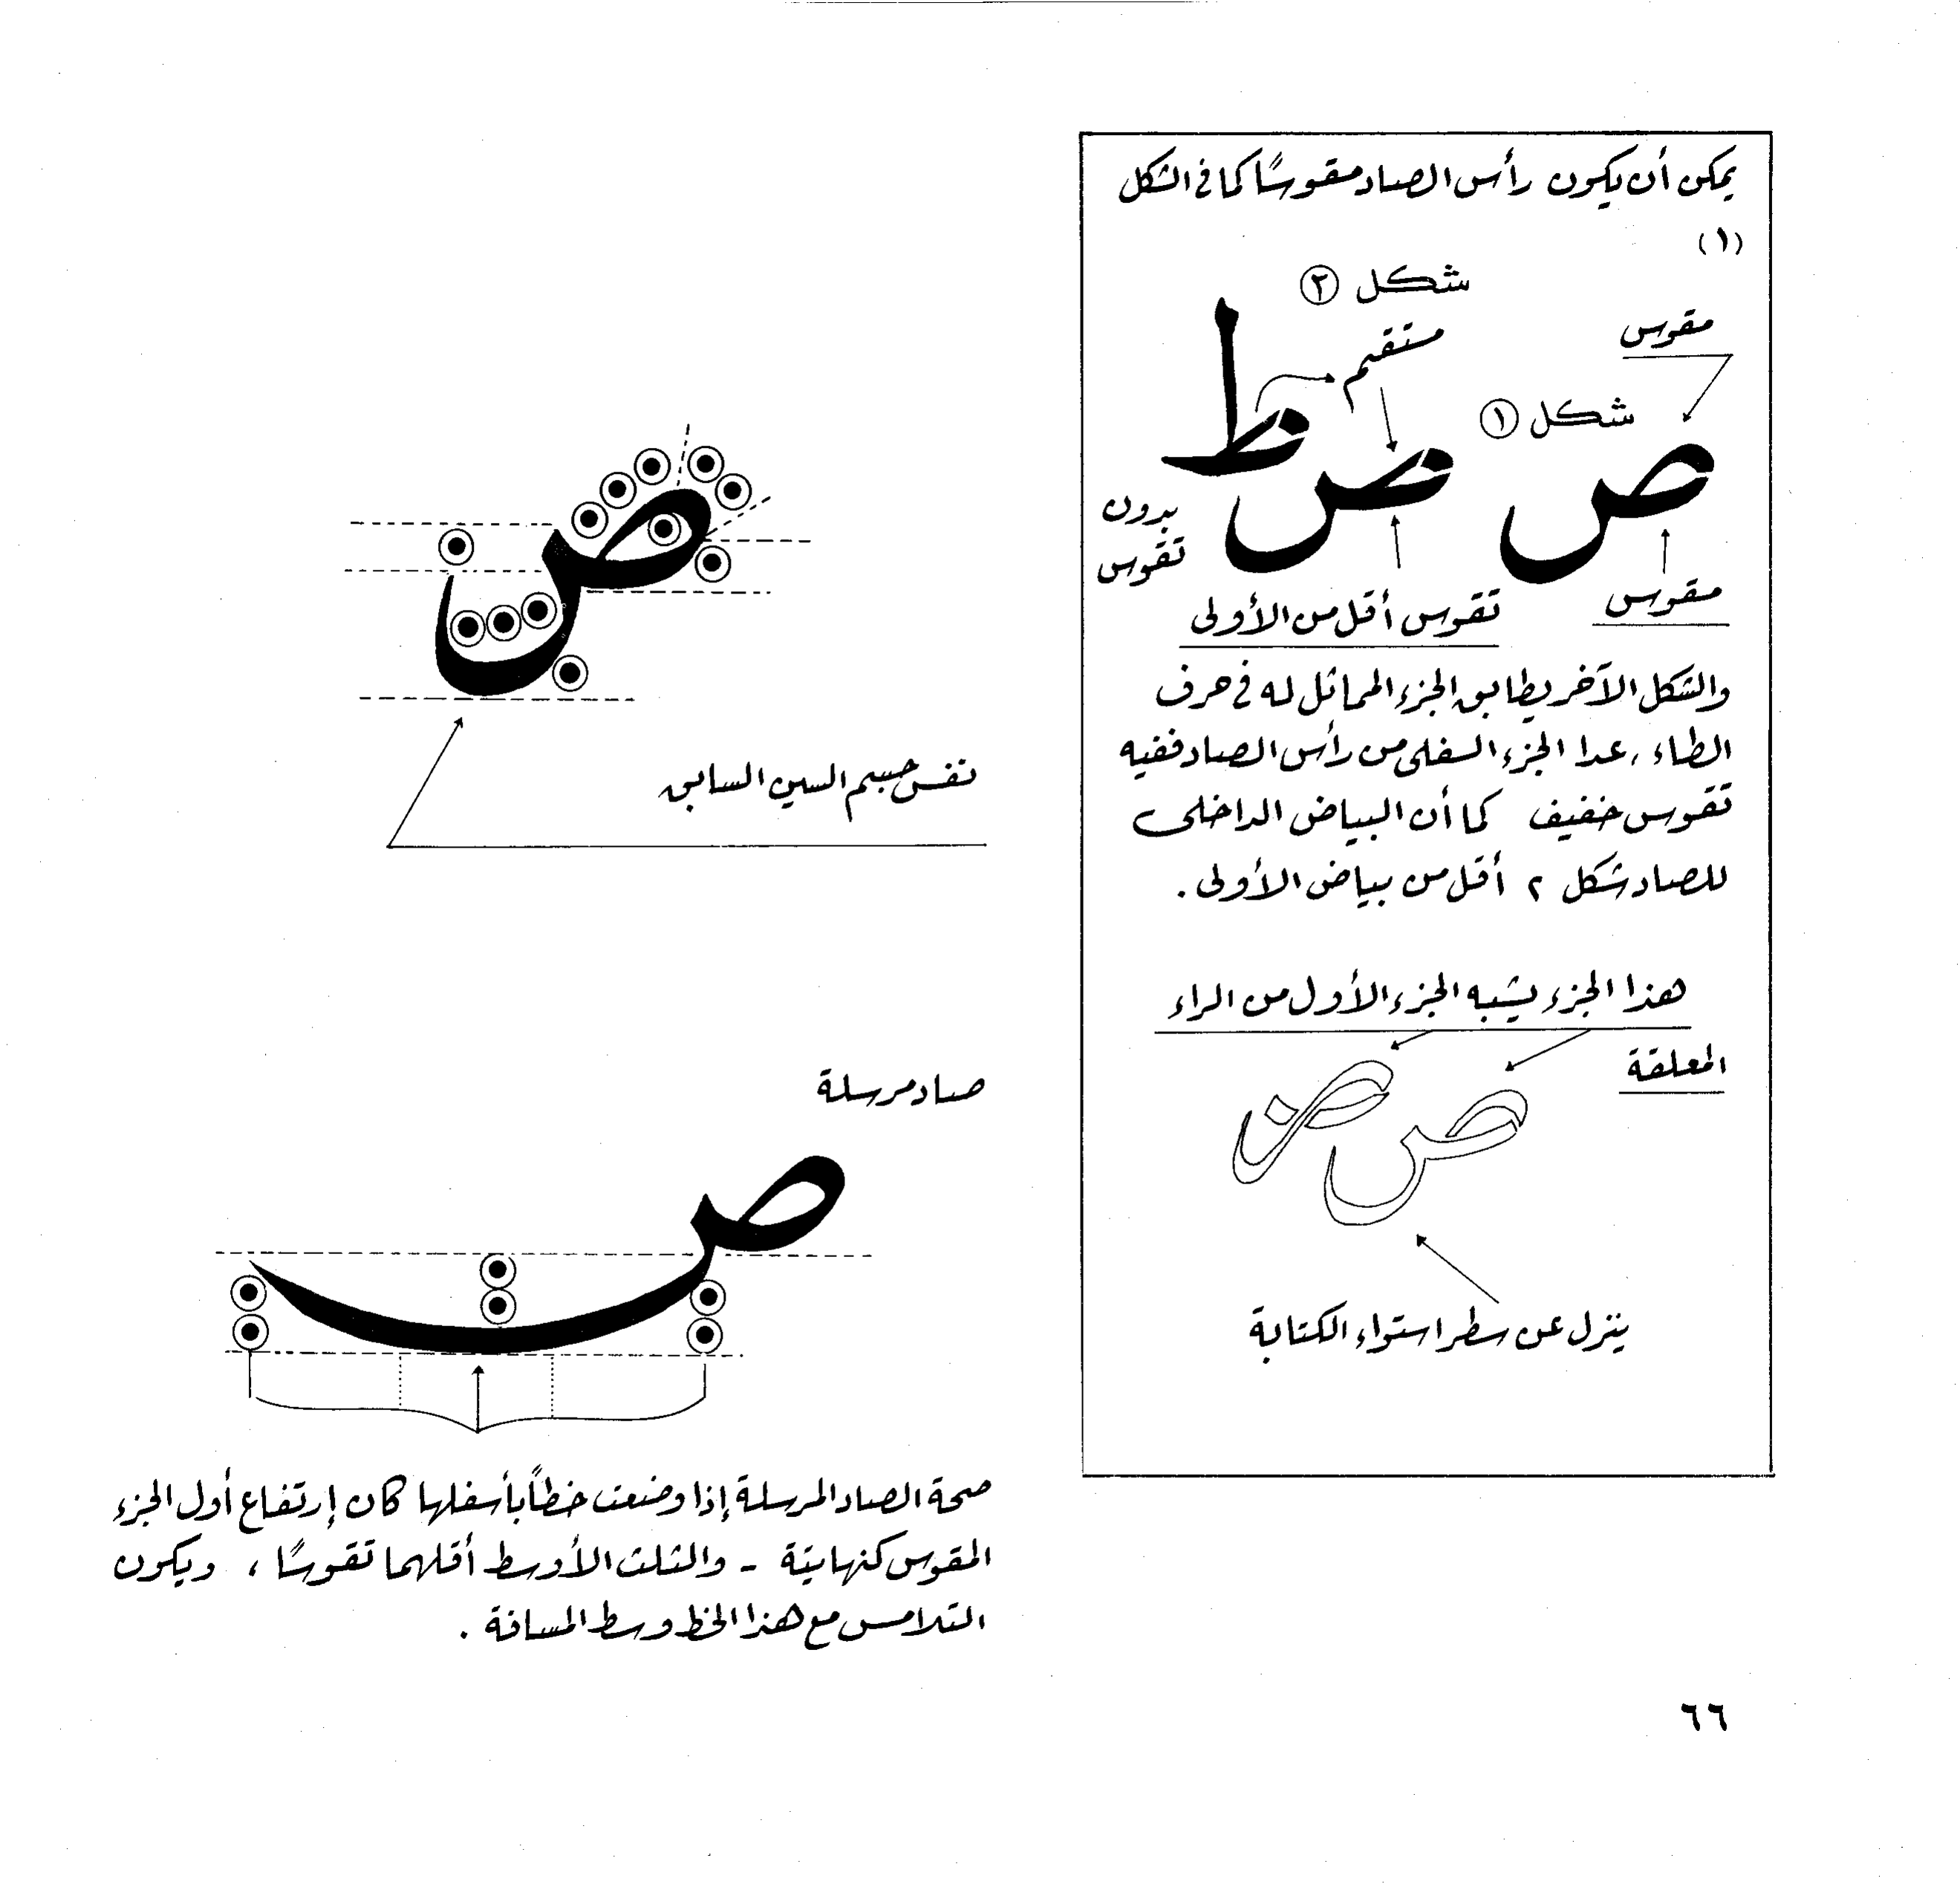 يمكن أن يكون رأس الصاد مقوسًا كما في الشكل
(١)
شكل ٢
مقوس
مستقيم
شكل ١
ص ض ط
بدون
تقوس
مقوس
تقوس أقل من الأولى
والشكل الآخر يطابق الجزء المماثل له في حرف
الطاء ، عدا الجزء السفلى من رأس الصاد ففيه
تقوس خفيف كما أن البياض الداخلى
للصاد شكل ٢ أقل من بياض الأولى .
هذا الجزء يشبه الجزء الأول من الراء
المعلقة
ص ض
ينزل عن سطر استواء الكتابة
ص
نفس جسم السين السابق
صاد مرسلة
ص
صحة الصاد المرسلة إذا وضعت خطاً بأسفلها كان إرتفاع أول الجزء
المقوس كنهايتة - والثلث الأوسط أقلهما تقوسًا ، ويكون
التلامس مع هذا الخط وسط المسافة .
٦٦